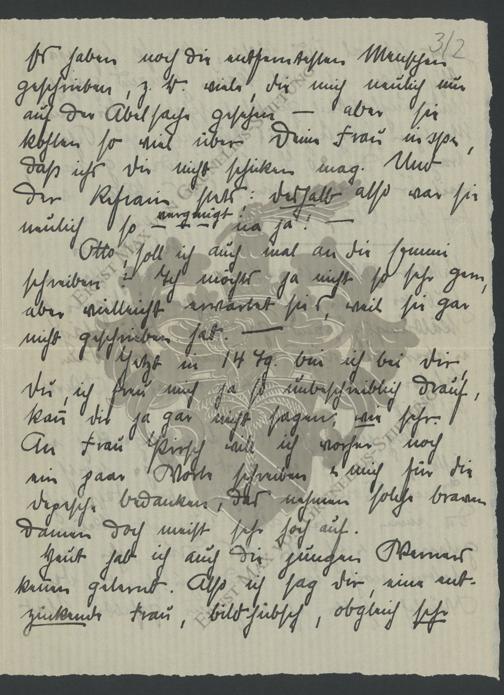 3/2
Es haben noch die entferntesten Menschen
geschrieben, z. B. viele, die mich neulich nur
auf der Abelsache gesehen — aber sie
so viel über Deine Frau
daß ichs Dir nicht schicken mag. Und
der Refrain stets: deshalb also war sie
neulich so vergnügt na ja! —
Otto soll ich auch mal an die Emmi
schreiben? Ich möchte ja nicht so sehr gern,
aber vielleicht erwartet sie's, weil sie gar
nicht geschrieben hat. —
Jetzt in 14 Tg. bin ich bei Dir,
Du, ich freu mich ja so unbeschreiblich drauf,
kann dir ja gar nicht sagen, wie sehr.
An Frau Kirsch will ich vorher noch
ein paar Worte schreiben & mich für die
Depesche bedanken, das nehmen solche braven
Damen doch meist sehr hoch auf.
Heut hab ich auch die jungen Werners
kennen gelernt. Also ich sag dir, eine ent-
zückende Frau, bildhübsch, obgleich sehr
ERNST MAX VON GRUNELIUS-STIFTUNG